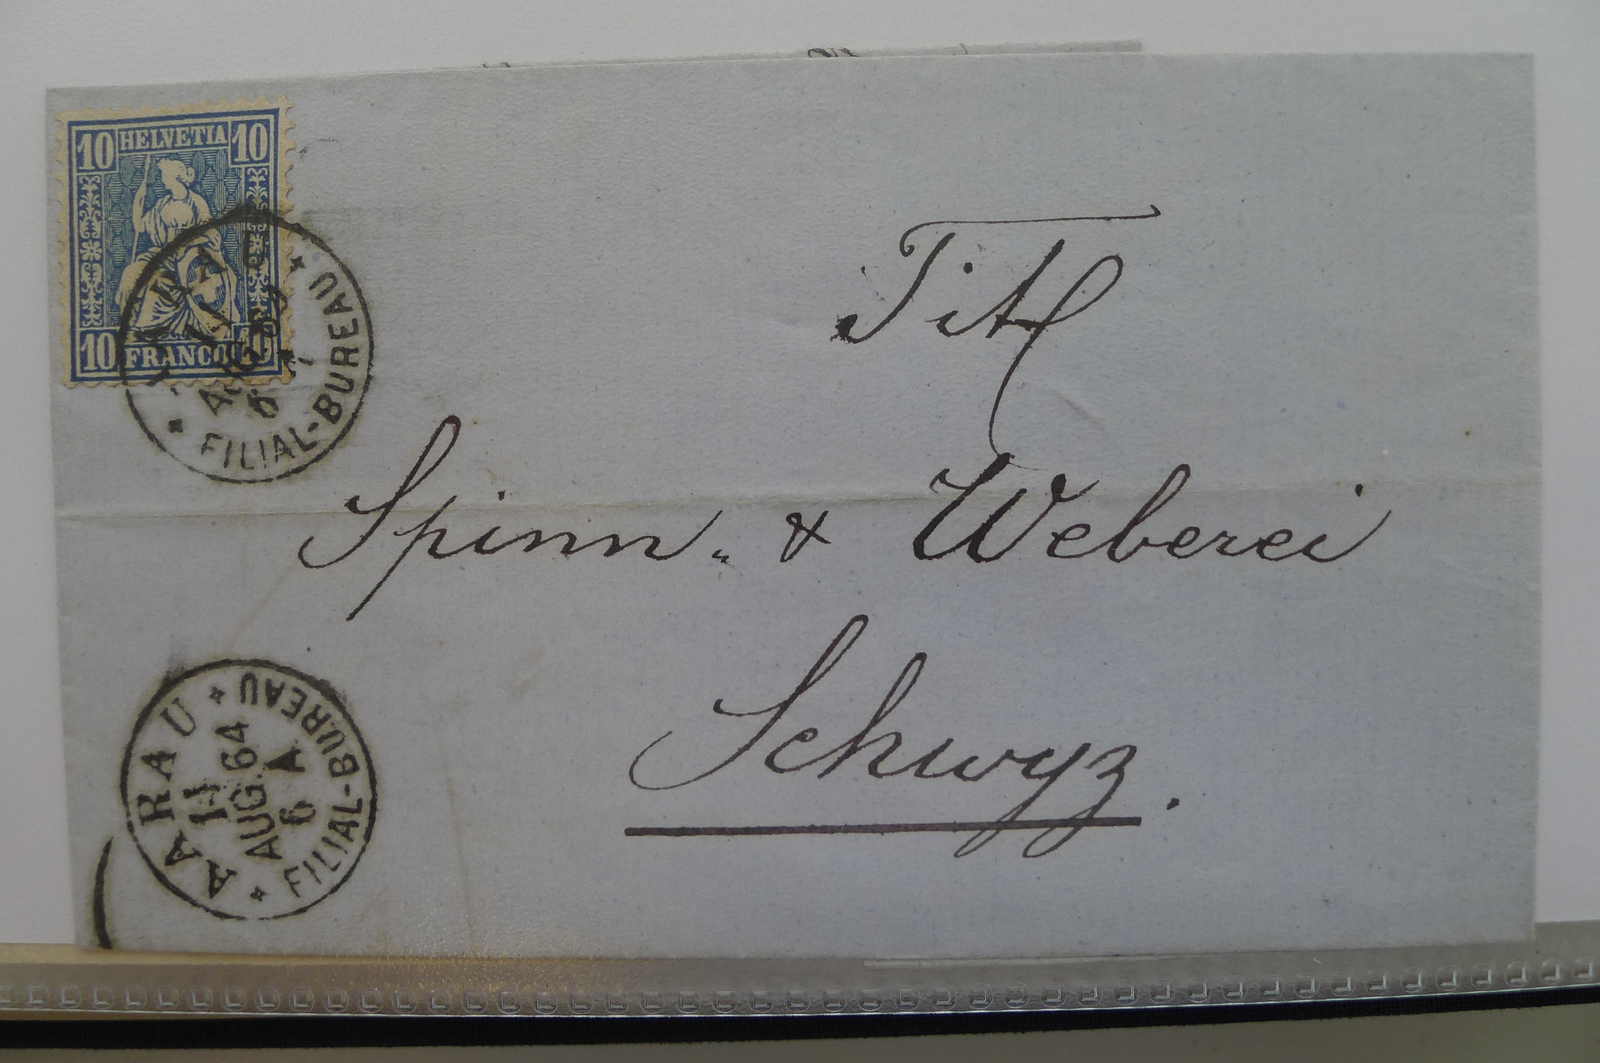 10 HELVETIA 10
10 FRANCO 10
FILIAL-BUREAU
Titl
Spinn- & Weberei
Schwyz.
AARAU
14
AUG. 64
6 A
FILIAL-BUREAU